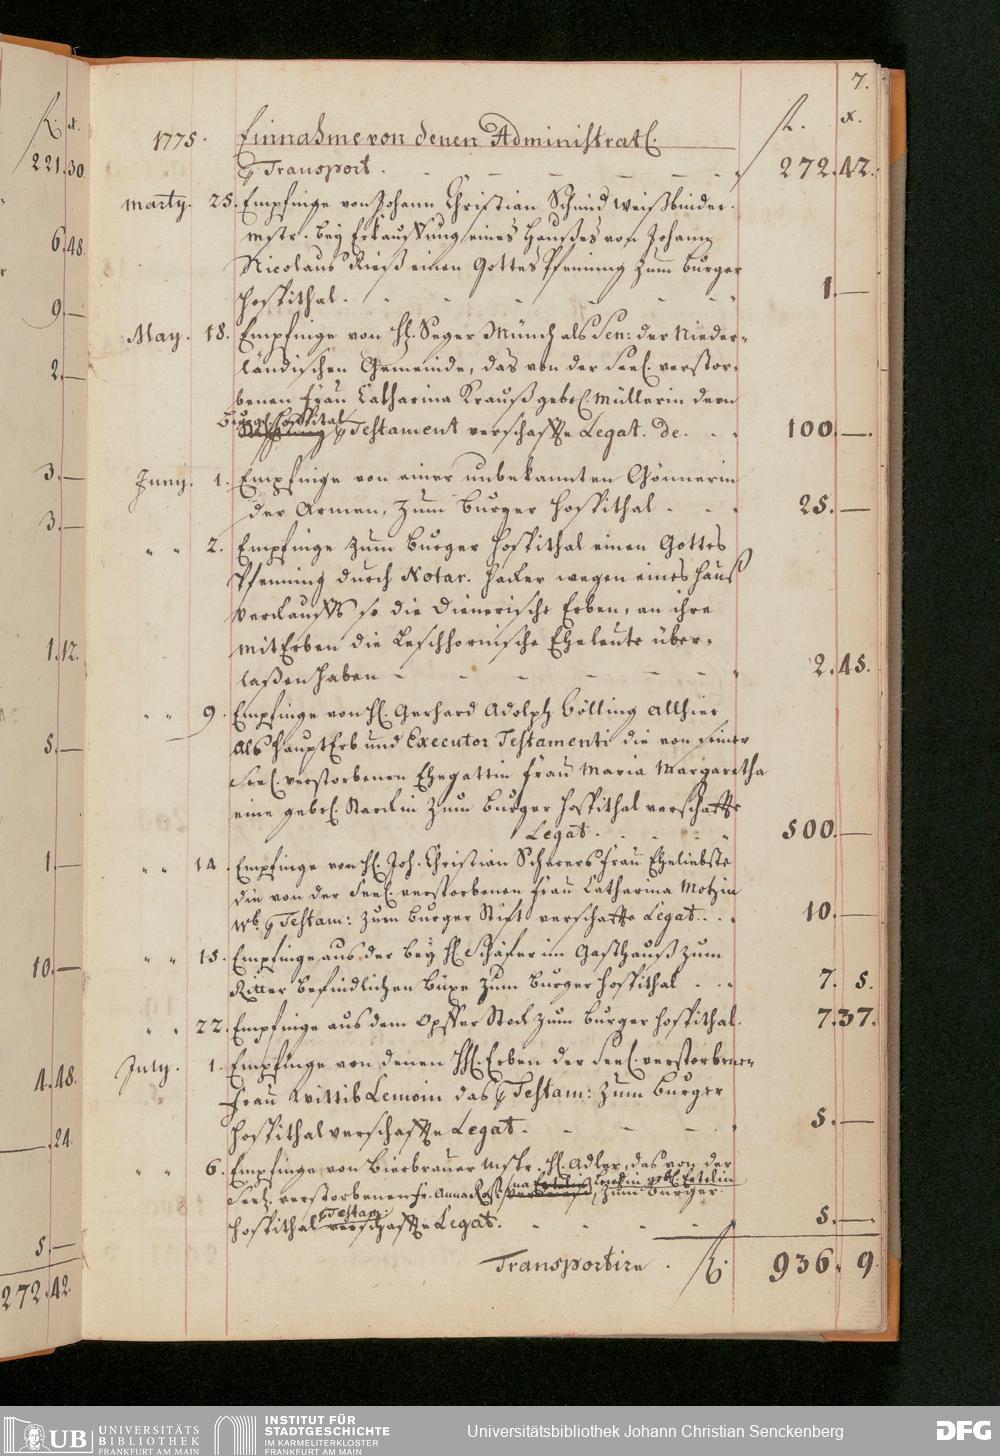 7.
1775. Einnahme von denen Administrat.
fl. x.
p Transport. 272. 42.
Marty. 25. Empfinge von Johann Christian Schmid Weißbinder.
Mstr. bey Erkauffung eines Haußes von Johann
Nicolaus Rieß einen Gottes Pfenning zum Burger
Hospithal. 1. —
May. 18. Empfinge von H. Seger Münch als Sen: der Nieder-
ländischen Gemeinde, das von der Seel. verstor-
benen Frau Catharina Krauß gebr. Müllerin dem
Burgl. Hospital
p Testament verschaffte Legat. de. 100. —.
Juny. 1. Empfinge von einer unbekannten Gönnerin
der Armen, zum Burger Hospithal 25. —
" " 2. Empfinge zum Burger Hospithal einen Gottes
Pfenning durch Notar. Hacker wegen eines Hauß
Verkauffs so die Dienerische Erben, an ihre
Mit Erben die Leschhornische Eheleute über-
laßen haben 2. 45.
" " 9. Empfinge von H. Gerhard Adolph Bölling allhier
als Haupt Erb und Executor Testamenti die von seiner
Seel. verstorbenen Ehegattin Frau Maria Margaretha
eine gebr. Starckin zum Burger Hospithal verschaffte
Legat. 500. —
" " 14. Empfinge von H. Joh. Christian Scherers Frau Eheliebste
die von der Seel. verstorbenen Frau Catharina Motzin
Wb. p Testam: zum Burger Stift verschaffte Legat. 10. —
" " 15. Empfinge aus der bey H. Schäfer im Gasthauß zum
Ritter befindlichen Büxe zum Burger Hospithal 7. 5.
" " 22. Empfinge aus dem Opffer Stock zum Burger Hospithal. 7. 37.
July. 1. Empfinge von denen HH. Erben der Seel. verstorbenen
Frau Wittib Lemoin das p Testam: zum Burger
Hospithal verschaffte Legat. 5. —
" " 6. Empfinge von Bierbrauer Mstr. H. Adler, das von der
Seel. verstorbenen Fr. Anna Rosina gebl. Ertelin, zum Burger
Hospithal p Testam: verschaffte Legat. 5. —.
Transportire. fl. 936. 9.
fl. x.
221. 30.
6. 48.
9. —
2. —
3. —
3. —
1. 12.
5. —
1. —
10. —
4. 48.
—. 24.
5. —
272. 42.
UB UNIVERSITÄTS
BIBLIOTHEK
FRANKFURT AM MAIN
INSTITUT FÜR
STADTGESCHICHTE
IM KARMELITERKLOSTER
FRANKFURT AM MAIN
Universitätsbibliothek Johann Christian Senckenberg
DFG